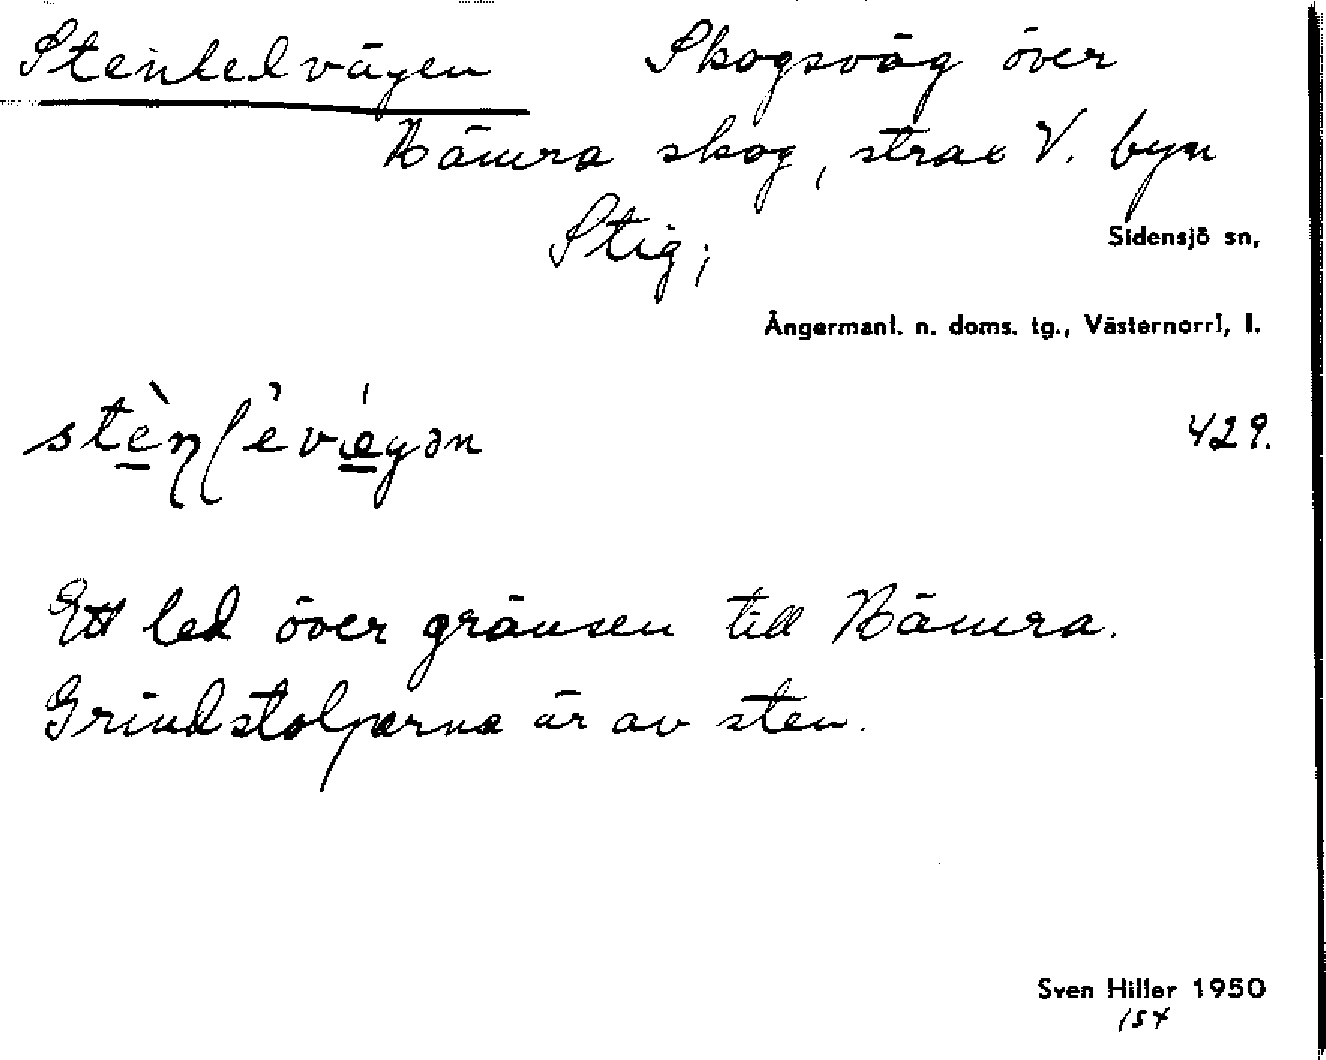 Stenledvägen Skogsväg över
Nämra skog, strax V. byn
Stig;
Sidensjö sn,
Ångermanl. n. doms. tg., Västernorrl, l.
429.
Ett led över gränsen till Nämra.
Grindstolparna är av sten.
Sven Hiller 1950
154